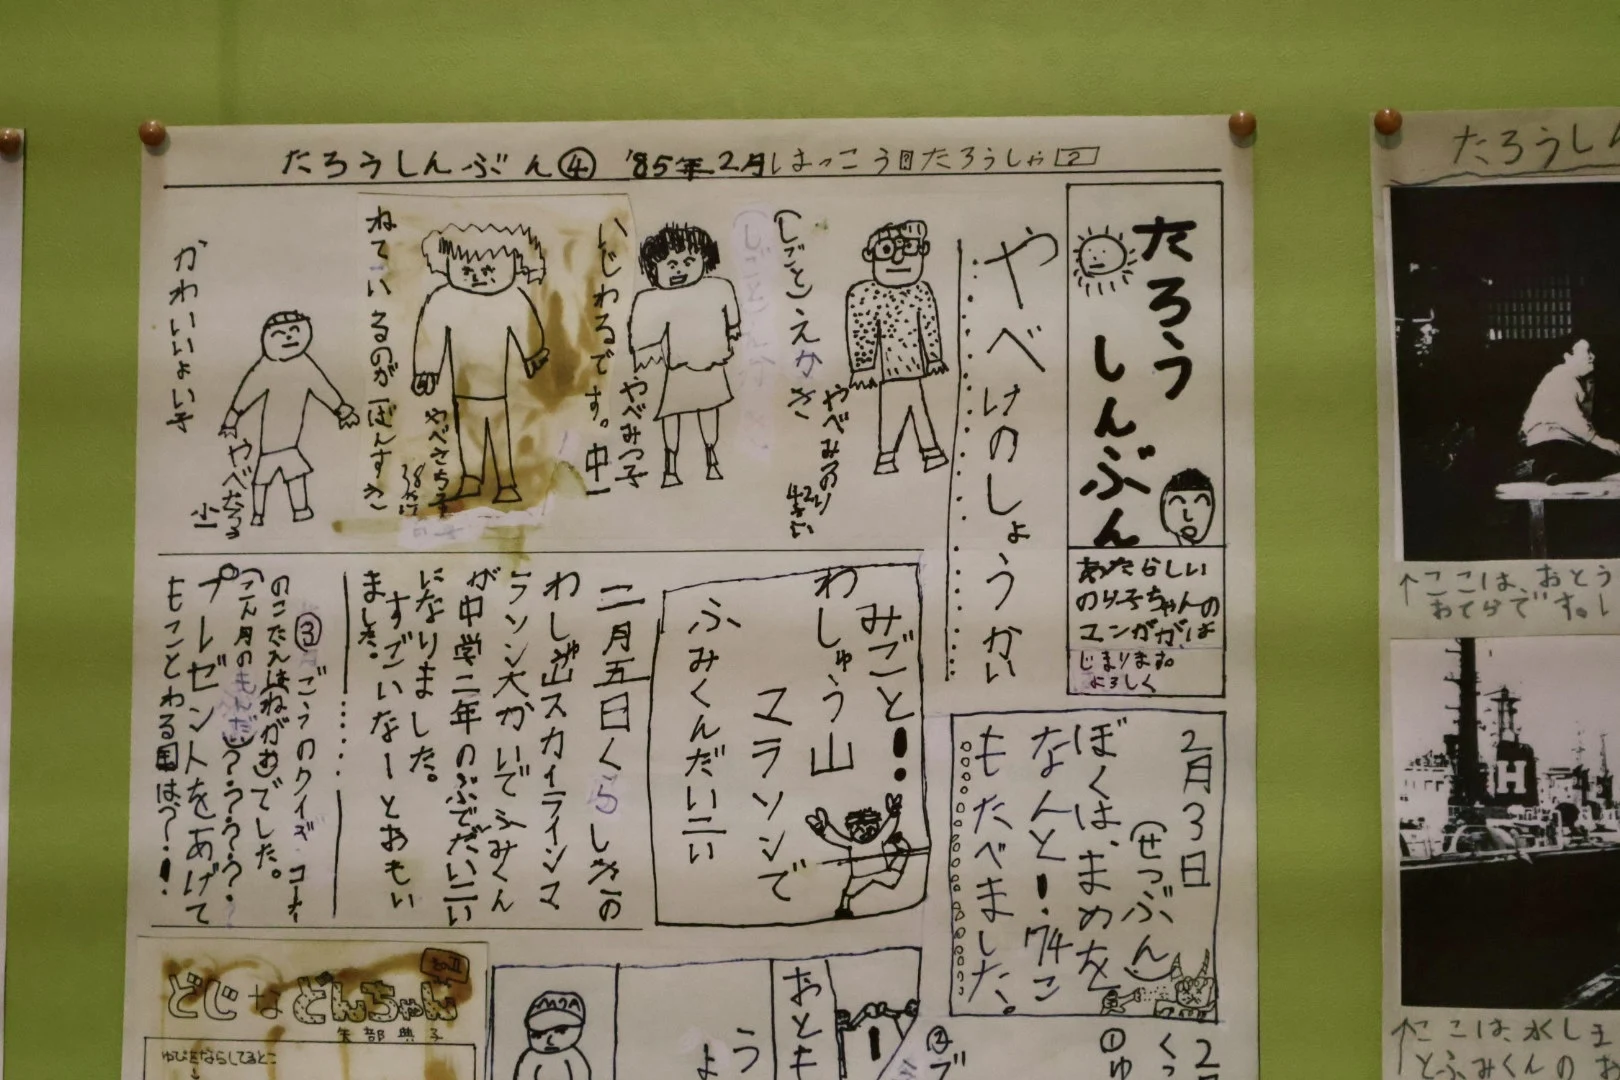 たろうしんぶん④ '85年2月はっこう たろうしゃ 2
たろう
しんぶん
あたらしい
のり子ちゃんの
マンガが、は
じまります。
よろしく
やべけのしょうかい
(しごと)えかき
やべみのり
42さい
いじわるです。中一
やべみつ子
ねているのが一ばんすき
やべさち子
38さい
かわいいよい子
やべたろう
小一
2月3日
(せつぶん)
ぼくは、まめを
なんと!74こ
もたべました。
みごと!
わしゅう山
マラソンで
ふみくんだい二い
二月五日くらしきの
わしゅう山スカイラインマ
ラソン大かいでふみくん
が中学二年のぶでだい二い
になりました。
すごいなーとおもい
ました。
③ごうのクイズコーナー
のこたえは(ねがお)でした。
(こん月のもんだい)?????
プレゼントをあげて
もことわる国は?!
どじなどんちゃん
矢部典子
ゆびをならしてるとこ
おとも
う
よ
②ブ
①ゆ
くつ
たろうし
↑ここは、おとう
おてらです。
H
↑ここは、水しま
とふみくんのお